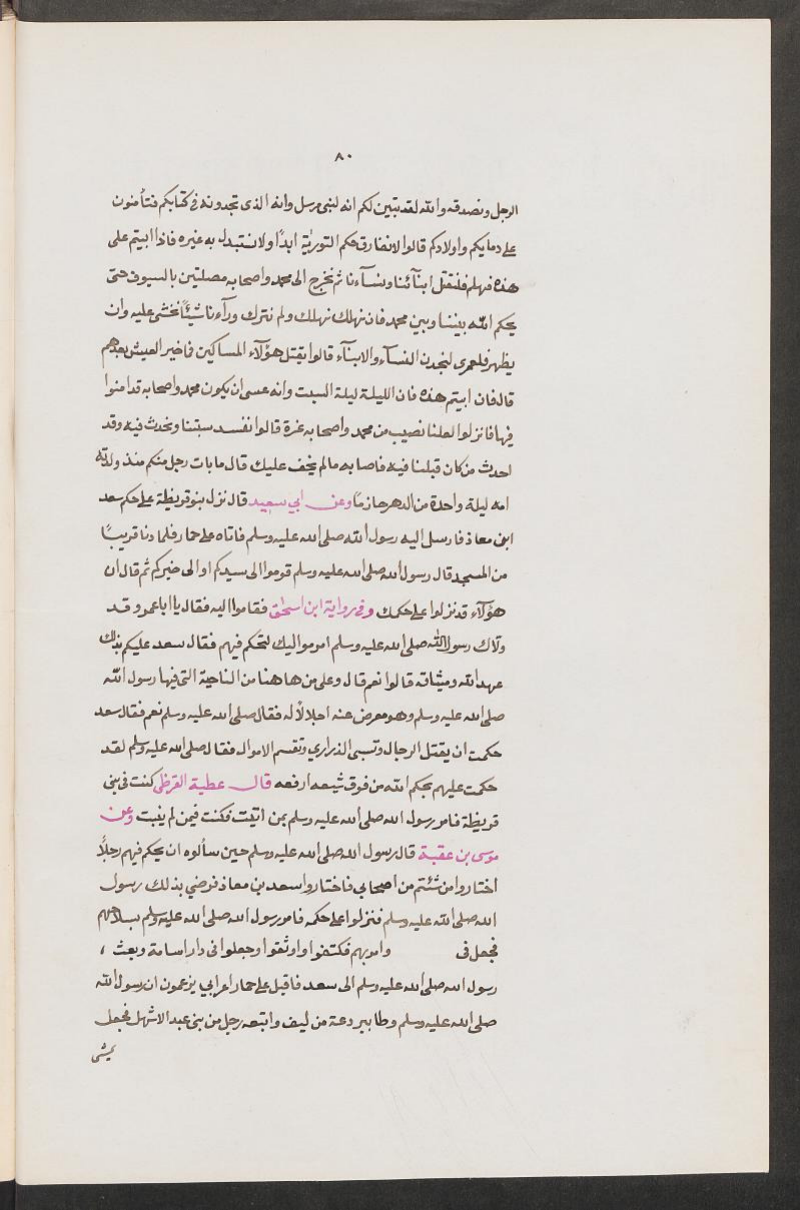 ٨٠
الرجل ونصدقه والله لقد تبين لكم انه لنبي مرسل وانه الذي تجدونه في كتابكم فتأمنون
على دمايكم واولادكم قالوا لا نفارق حكم التورية ابدًا ولا نستبدل به غيره فاذا ابيتم على
هذه فهلم فلنقتل ابنآئنا ونسآءنا ثم نخرج الى محمد واصحابه مصلتين بالسيوف حتى
يحكم الله بيننا وبين محمد فان نهلك نهلك ولم نترك ورآءنا شيئًا نخشى عليه وان
يظهر فلعمري لنجدن النسآء والابنآء قالوا يقتل هؤلآء المساكين فما خير العيش بعدهم
قال فان ابيتم هذه فان الليلة ليلة السبت وانه عسى ان يكون محمد واصحابه قد امنوا
فيها فانزلوا لعلنا نصيب من محمد واصحابه غرة قالوا نفسد سبتنا ونحدث فيه وقد
احدث من كان قبلنا فيه فاصابه مالم يخف عليك قال ما بات رجل منكم منذ ولدته
امه ليلة واحدة من الدهر حازمًا وعن ابي سعيد قال نزل بنو قريظة على حكم سعد
ابن معاذ فارسل اليه رسول الله صلى الله عليه وسلم فاتاه على حمار فلما دنا قريبًا
من المسجد قال رسول الله صلى الله عليه وسلم قوموا الى سيدكم او الى خيركم ثم قال ان
هؤلآء قد نزلوا على حكمك وفي رواية ابن اسحق فقاموا اليه فقال يا ابا عمرو قد
ولاك رسول الله صلى الله عليه وسلم امر مواليك لتحكم فيهم فقال سعد عليكم بذلك
عهد الله وميثاقه قالوا نعم قال وعلى من هاهنا من الناحية التي فيها رسول الله
صلى الله عليه وسلم وهو معرض عنه اجلالًا له فقال صلى الله عليه وسلم نعم فقال سعد
حكمت ان يقتل الرجال وتسبى الذراري وتقسم الاموال فقال صلى الله عليه وسلم لقد
حكمت عليهم بحكم الله من فوق سبعه ارقعه قال عطية القرظي كنت في بني
قريظة فامر رسول الله صلى الله عليه وسلم بمن انبت فكنت فيمن لم ينبت وعن
موسى بن عقبة قال رسول الله صلى الله عليه وسلم حين سألوه ان يحكم فيهم رجلًا
اختاروا من شئتم من اصحابي فاختاروا سعد بن معاذ فرضي بذلك رسول
الله صلى الله عليه وسلم فنزلوا على حكمه فامر رسول الله صلى الله عليه وسلم بسلاحهم
فجعل في وامر بهم فكتفوا واوثقوا وجعلوا في دار اسامة وبعث ،
رسول الله صلى الله عليه وسلم الى سعد فاقبل على حمار اعرابي يزعمون ان رسول الله
صلى الله عليه وسلم وطا ببردعة من ليف واتبعه رجل من بني عبد الاشهل فجعل
يمشي